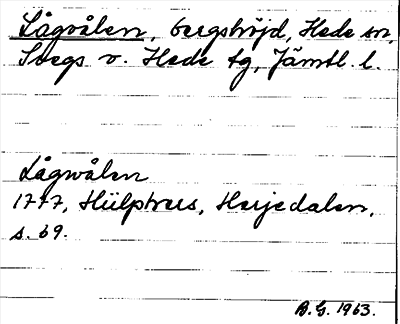 Lågvålen, bergshöjd, Hede sn,
Svegs o. Hede tg, Jämtl. l.
Lågwålen
1777, Hülphers, Herjedalen,
s. 69.
B.G. 1963.